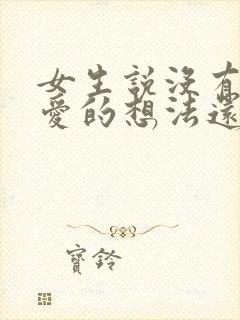 女生說沒有
愛的想法還
寶鈴